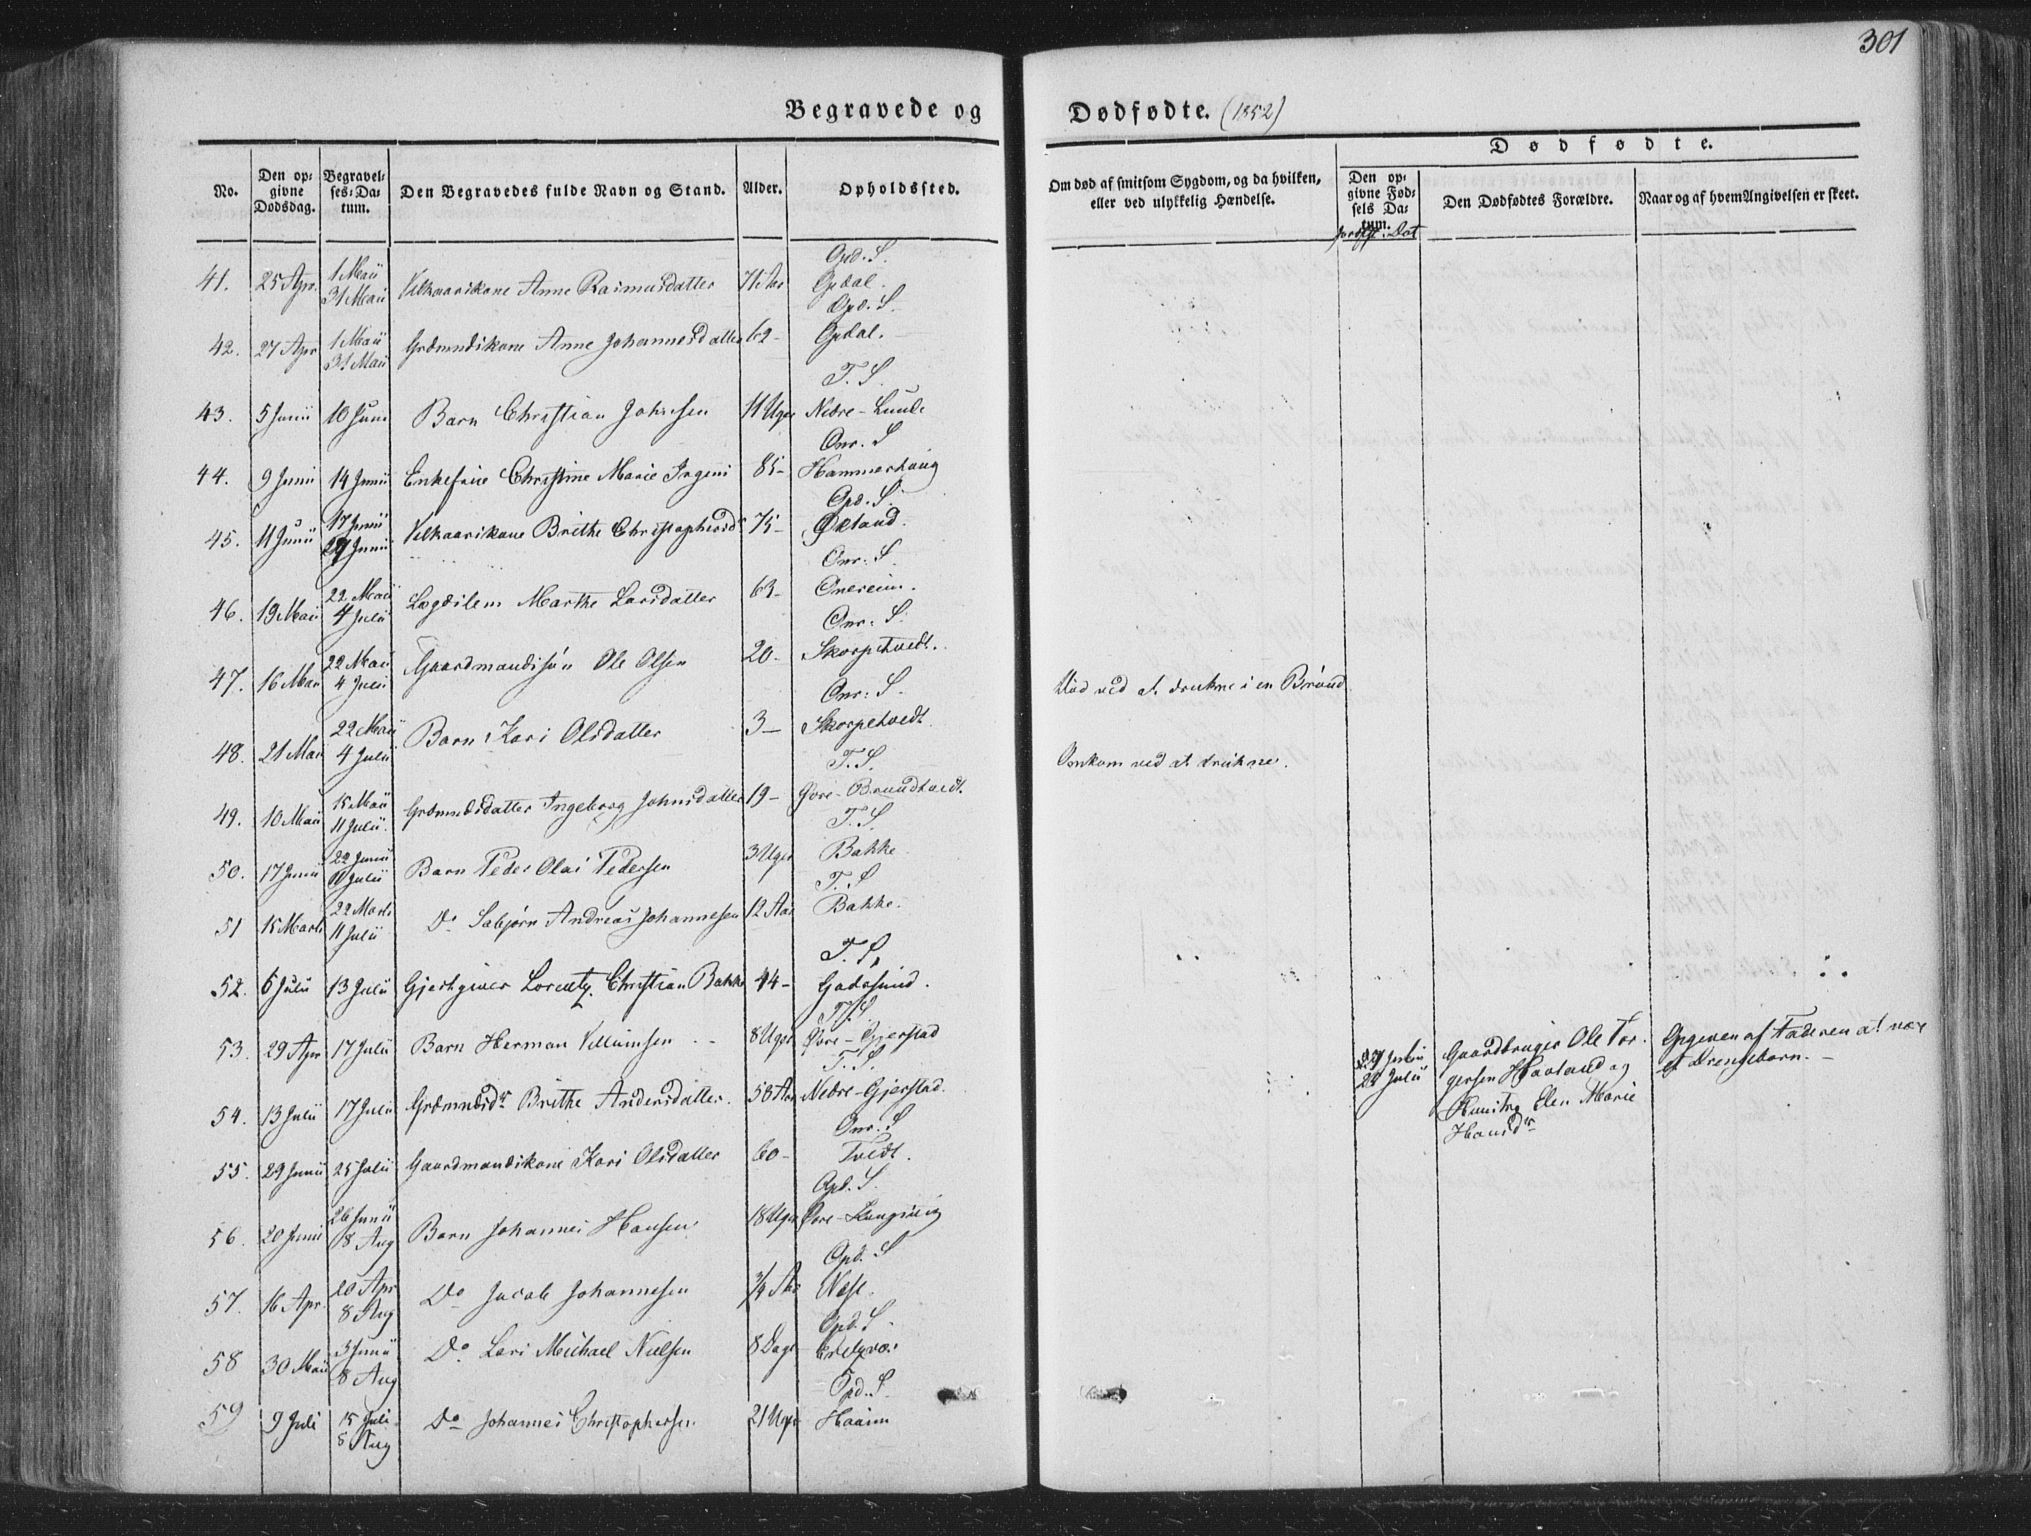 301
Begravede og Dødfødte. (1852)
No.
Den op-
givne
Dødsdag.
Begravel-
ses-Da-
tum.
Den Begravedes fulde Navn og Stand.
Alder.
Opholdssted.
Om død af smitsom Sygdom, og da hvilken,
eller ved ulykkelig Hændelse.
Dødfødte.
Den op-
givne Fød-
sels Da-
tum.
Den Dødfødtes Forældre.
Naar og af hvem Angivelsen er skeet.
Opd. S.
41. 25 Apr. 1 Maii 31 Maii Velkaarskone Anne Rasmusdatter 71 Aar Opdal.
Opd. S.
42. 27 Apr 1 Maii 31 Maii Grdmndskone Anne Johannesdatter 62- Opdal.
T. S.
43. 5 Junii 10 Juni Barn Christian Johnsen 11 Uger Nedre-Lunde
Onr. S
44. 9 Juni 14 Junii Enkefrue Christine Marie Irgens 85- Hammerhoug
Opd. S.
45. 11 Junii 17 Junii 29 Junii Velkaarskone Brithe Christophersdr 75- Økland.
Onr. S
46. 19 Maii 22 Maii 4 Julii Lægdslem Marthe Larsdatter 63- Onereim.
Onr. S.
47. 16 Mai 22 Maii 4 Julii Gaardmandssøn Ole Olsen 20- Skorpetvedt. Død ved at drukne i en Brønd
Onr. S.
48. 21 Mai 22 Maii 4 Julii Barn Kari Olsdatter 3- Skorpetvedt Omkom ved at drukne.
T. S.
49. 10 Maii 15 Maii 11 Julii. Grdmndsdatter Ingeborg Johnsdatter 19- Øvre-Brundtvedt.
T. S.
50. 17 Junii 22 Junii 11 Julii Barn Peder Olai Pedersen 3 Uger Bakke
T. S
51 15 Marts 22 Marts 11 Julii Do Sebjørn Andreas Johannesen 12 Aar Bakke.
T. S.
52. 6 Julii 13 Julii Gjestgiver Lorentz Christian Bakke 44- Godøsund.
T. S.
53. 29 Apr 17 Julii Barn Herman Villumsen 8 Uger Øvre-Gjerstad
T. S.
54. 13 Julii 17 Julii Grdmndsdr Brithe Andersdatter. 58 Aar Nedre-Gjerstad.
Onr. S
55. 29 Junii 25 Julii Gaardmandskone Kari Olsdatter 60- Tvedt.
Opd. S.
56. 20 Juni 26 Junii 8 Aug Barn Johannes Hansen 18 Uger Øvre-
Opd. S
57. 16 Apr. 20 Apr 8 Aug Do Jacob Johannesen 3/4 Aar Næse.
Opd. S
58 30 Maii 3 Junii 8 Aug Do. Lars Michael Nielsen 8 Dage
Opd. S.
59 9 Juli 15 Juli 8 Aug Do Johannes Christophersen 21 Uger Haaim
27 Julii
28 Julii
Gaardbruger Ole Tor-
gersen Haaland og
Hustru Elen Marie
Hansdr
Opgiven af Faderen at være
et Drengebarn.